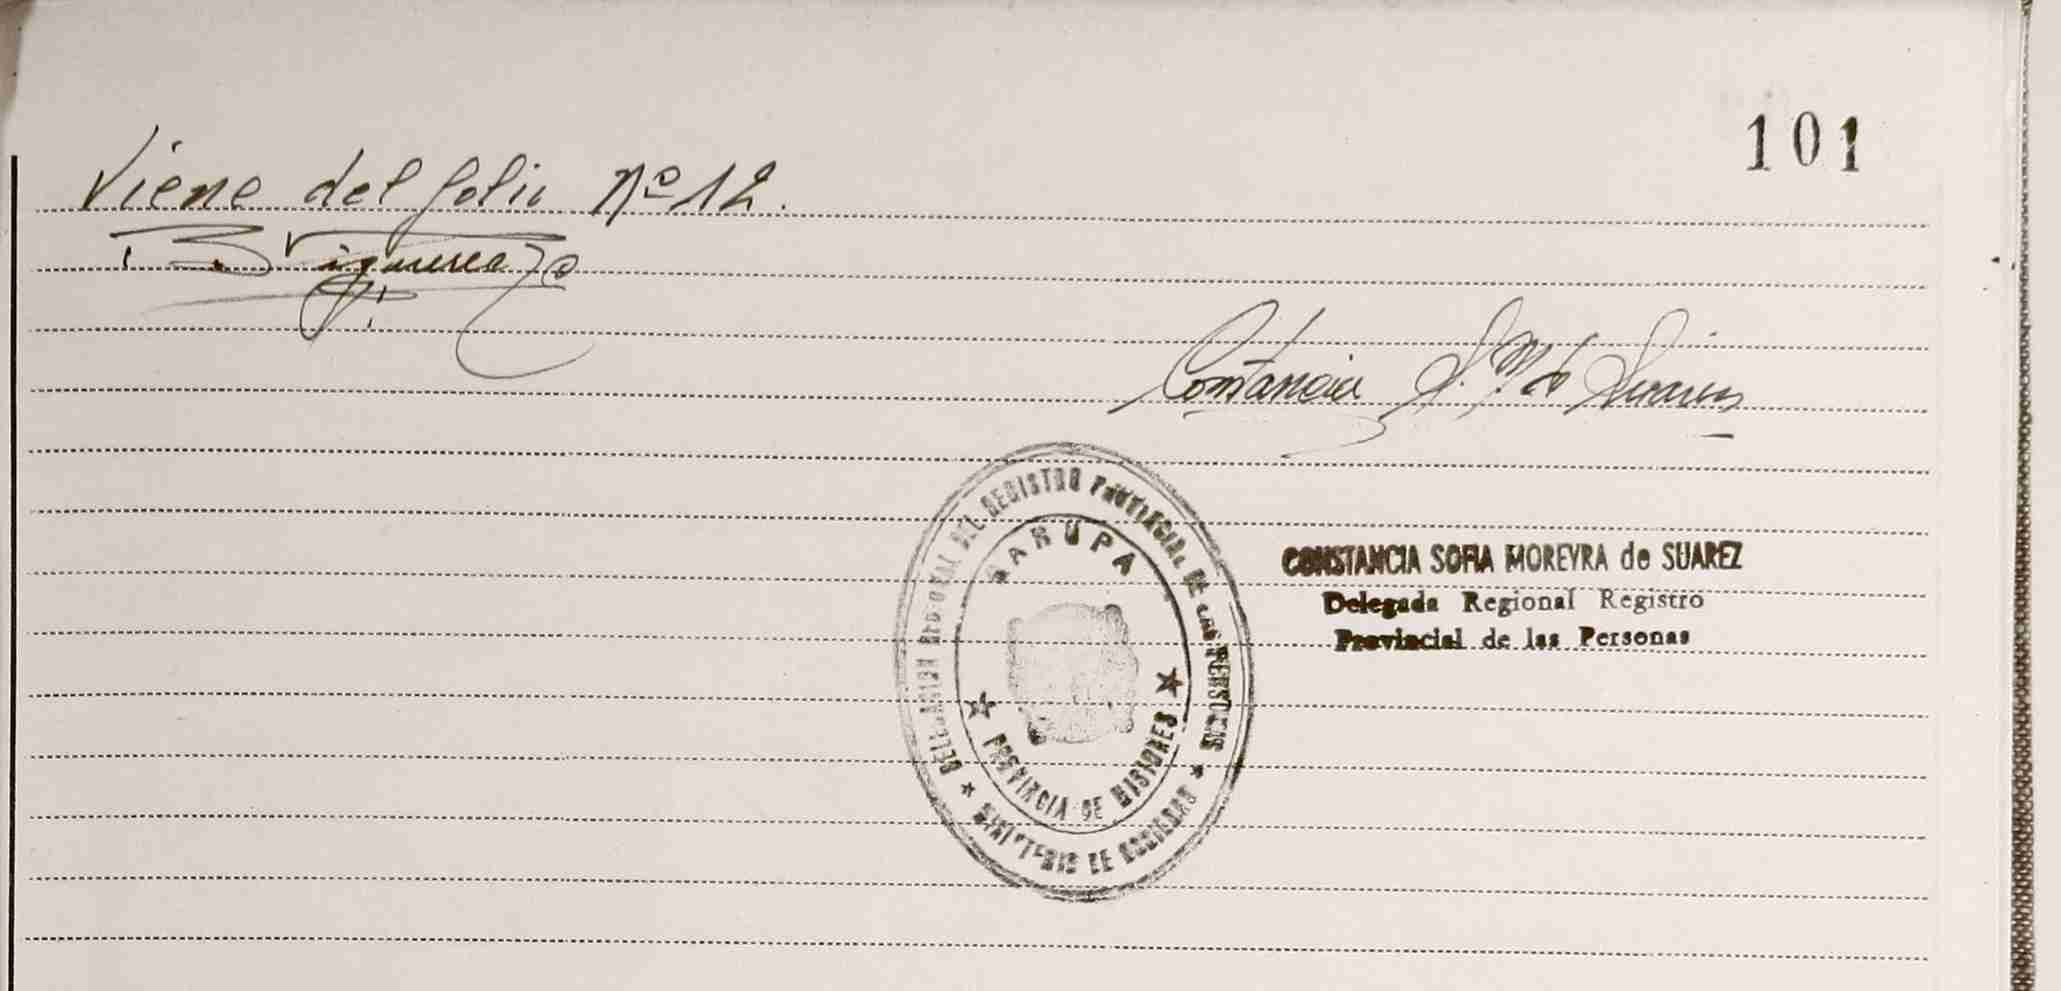 101
Viene del folio Nº 12.
Constancia S. M. de Suarez
DELEGACION REGIONAL DEL REGISTRO PROVINCIAL DE LAS PERSONAS
GARUPA
PROVINCIA DE MISIONES
MINISTERIO DE GOBIERNO
CONSTANCIA SOFIA MOREYRA de SUAREZ
Delegada Regional Registro
Provincial de las Personas